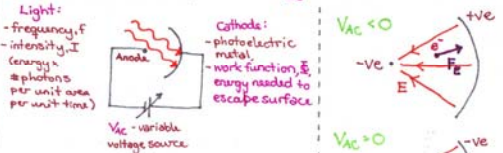 Light:
- frequency, f
- intensity, I
(energy x
# photons
per unit area
per unit time)
Anode
V_AC - variable
voltage source
Cathode:
- photoelectric
metal
- work function, Φ,
energy needed to
escape surface
V_AC < 0
+ve
e-
-ve
F_E
E
V_AC > 0
-ve